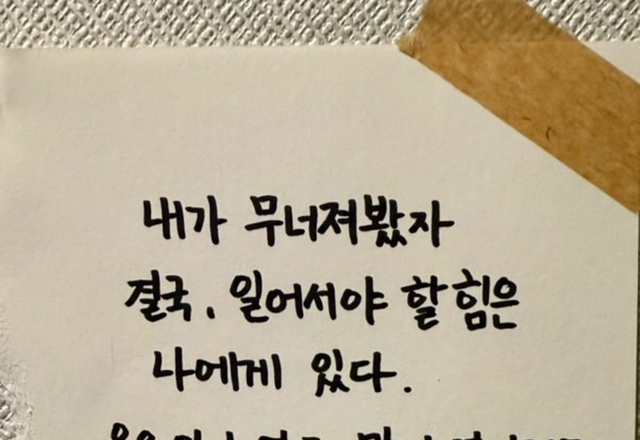 내가 무너져봤자
결국, 일어서야 할 힘은
나에게 있다.